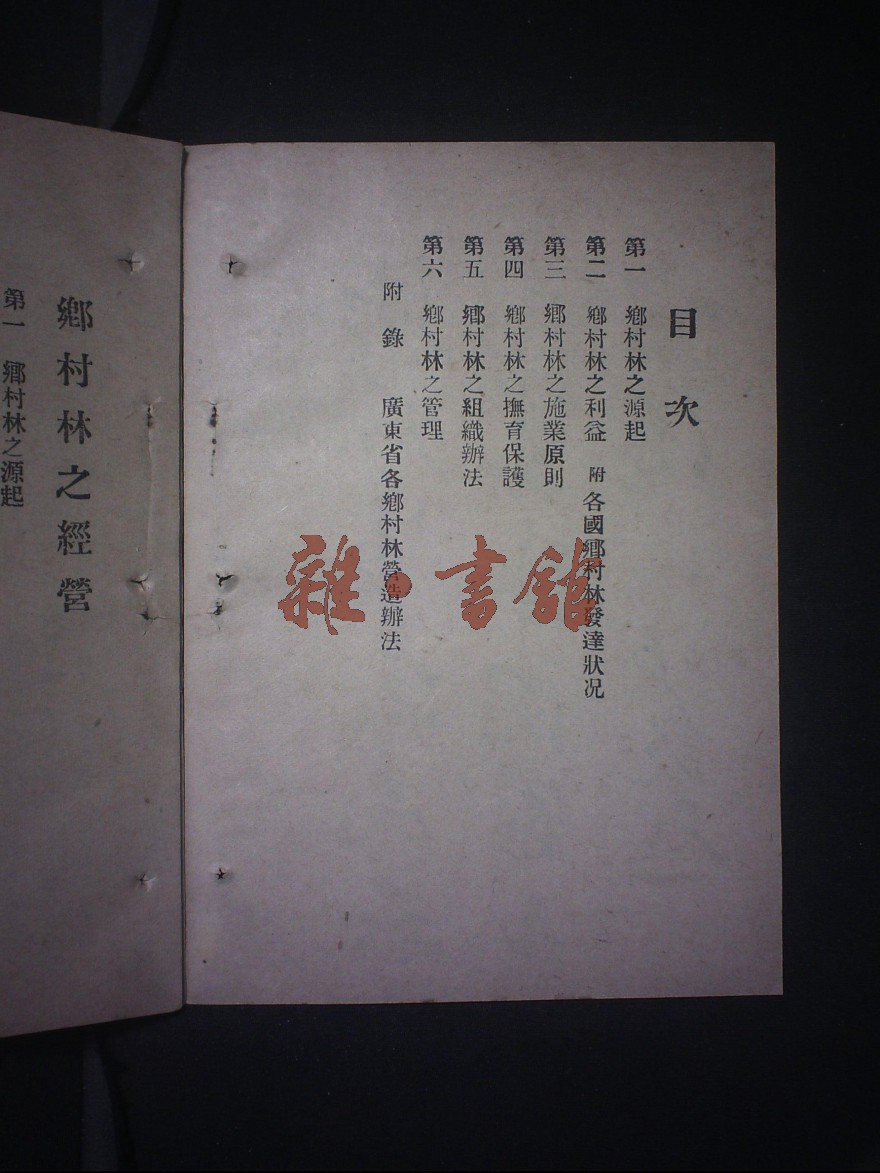 目次
第一 鄉村林之源起
第二 鄉村林之利益 附 各國鄉村林發達狀况
第三 鄉村林之施業原則
第四 鄉村林之撫育保護
第五 鄉村林之組織辦法
第六 鄉村林之管理
附錄 廣東省各鄉村林營造辦法
鄉村林之經營
第一 鄉村林之源起
雜·書館